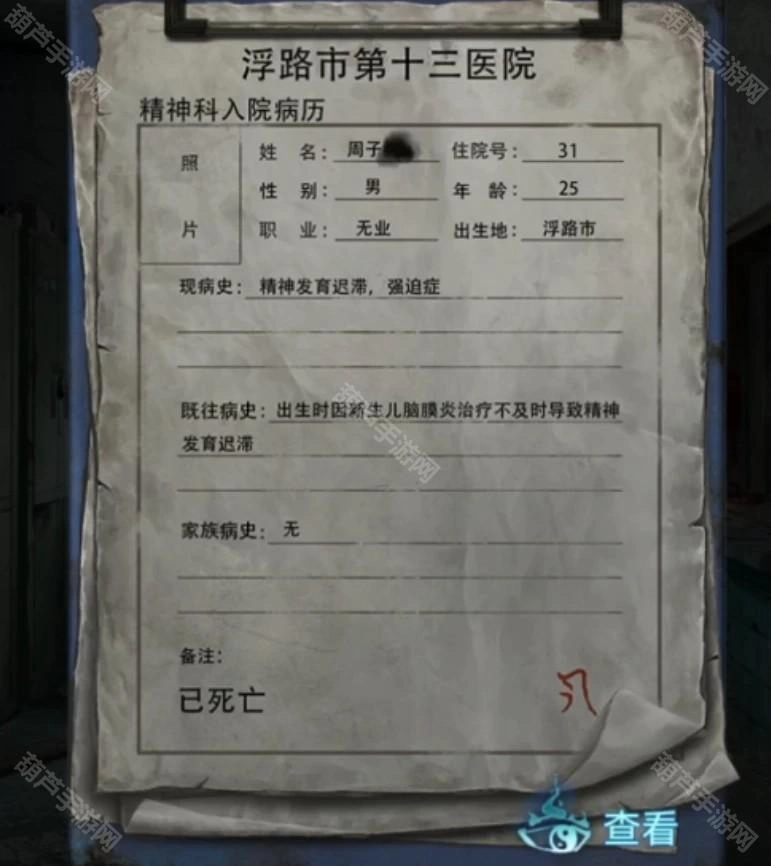 浮路市第十三医院
精神科入院病历
照片
姓 名：周子 住院号：31
性 别：男 年 龄：25
职 业：无业 出生地：浮路市
现病史：精神发育迟滞，强迫症
既往病史：出生时因新生儿脑膜炎治疗不及时导致精神
发育迟滞
家族病史：无
备注：
已死亡
查看
葫芦手游网
葫芦手游网
葫芦手游网
葫芦手游网
葫芦手游网